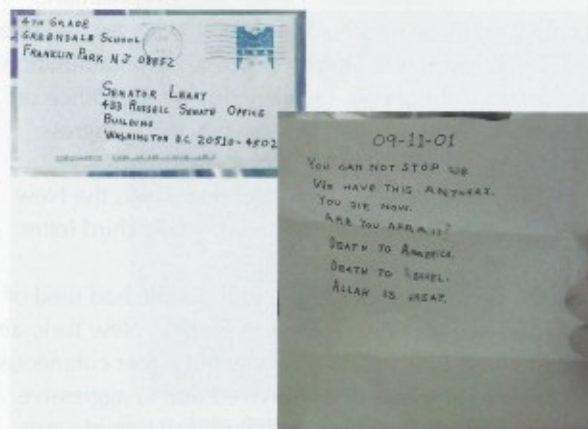 4TH GRADE
GREENDALE SCHOOL
FRANKLIN PARK NJ 08852
SENATOR LEAHY
433 RUSSELL SENATE OFFICE
BUILDING
WASHINGTON D.C. 20510-4502
09-11-01
YOU CAN NOT STOP US.
WE HAVE THIS ANTHRAX.
YOU DIE NOW.
ARE YOU AFRAID?
DEATH TO AMERICA.
DEATH TO ISRAEL.
ALLAH IS GREAT.